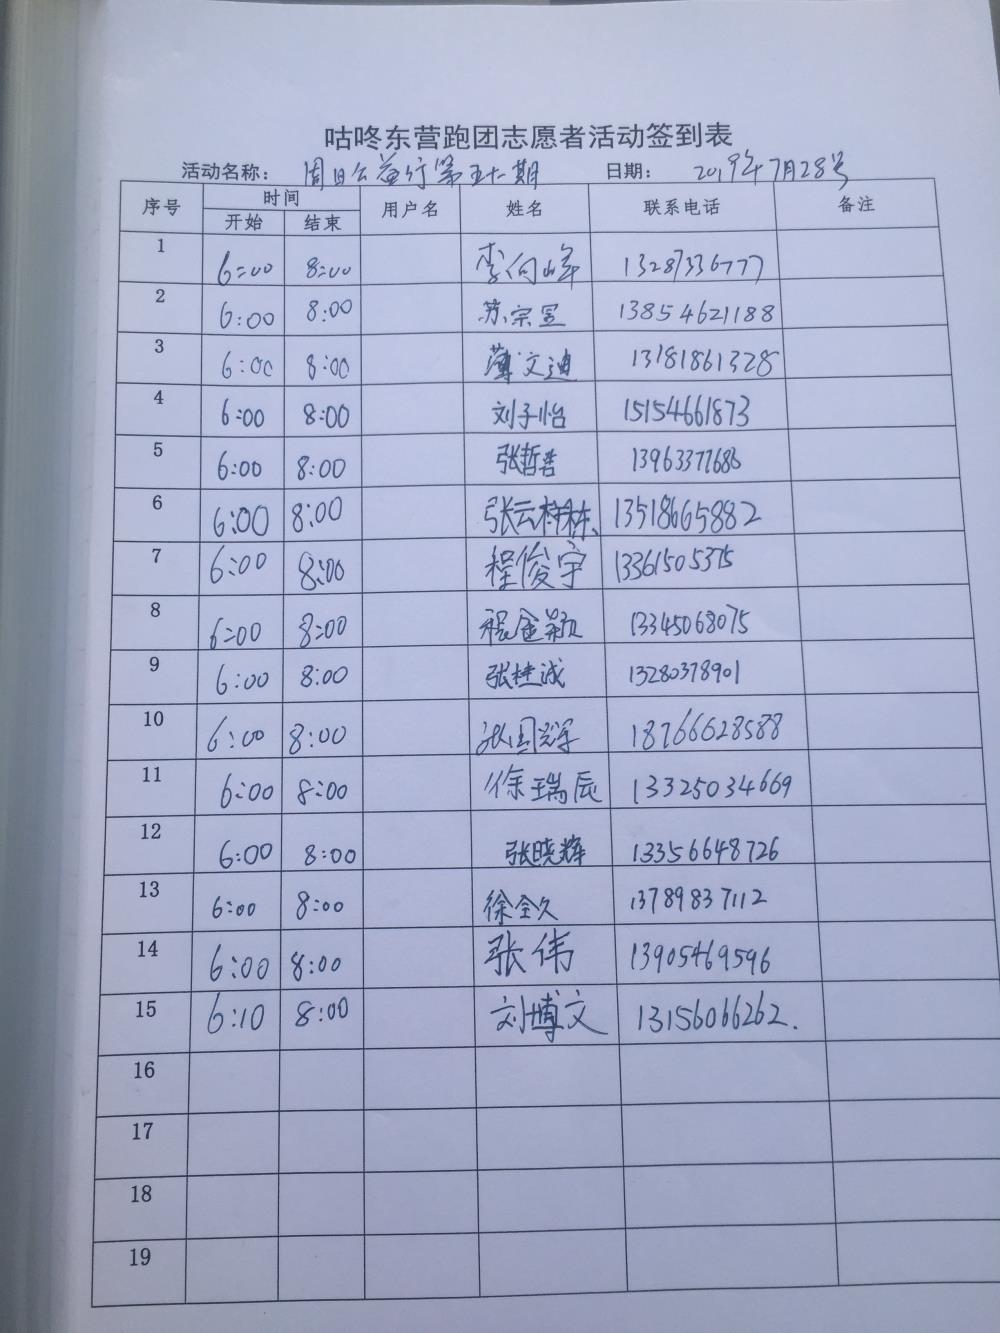 咕咚东营跑团志愿者活动签到表
活动名称： 周日公益行第五十一期 日期： 2019年7月28号
序号 时间 用户名 姓名 联系电话 备注
开始 结束
1 6:00 8:00 李向峰 13287336777
2 6:00 8:00 苏宗昱 13854621188
3 6:00 8:00 薄文迪 13181861328
4 6:00 8:00 刘子怡 15154661873
5 6:00 8:00 张哲浩 13963377686
6 6:00 8:00 张云栋 13518665882
7 6:00 8:00 程俊宇 13361505375
8 6:00 8:00 程金颖 13345068075
9 6:00 8:00 张桂诚 13280378901
10 6:00 8:00 张国辉 18766628588
11 6:00 8:00 徐瑞辰 13325034669
12 6:00 8:00 张晓辉 13356648726
13 6:00 8:00 徐全久 13789837112
14 6:00 8:00 张伟 13905469596
15 6:10 8:00 刘博文 13156066262.
16
17
18
19